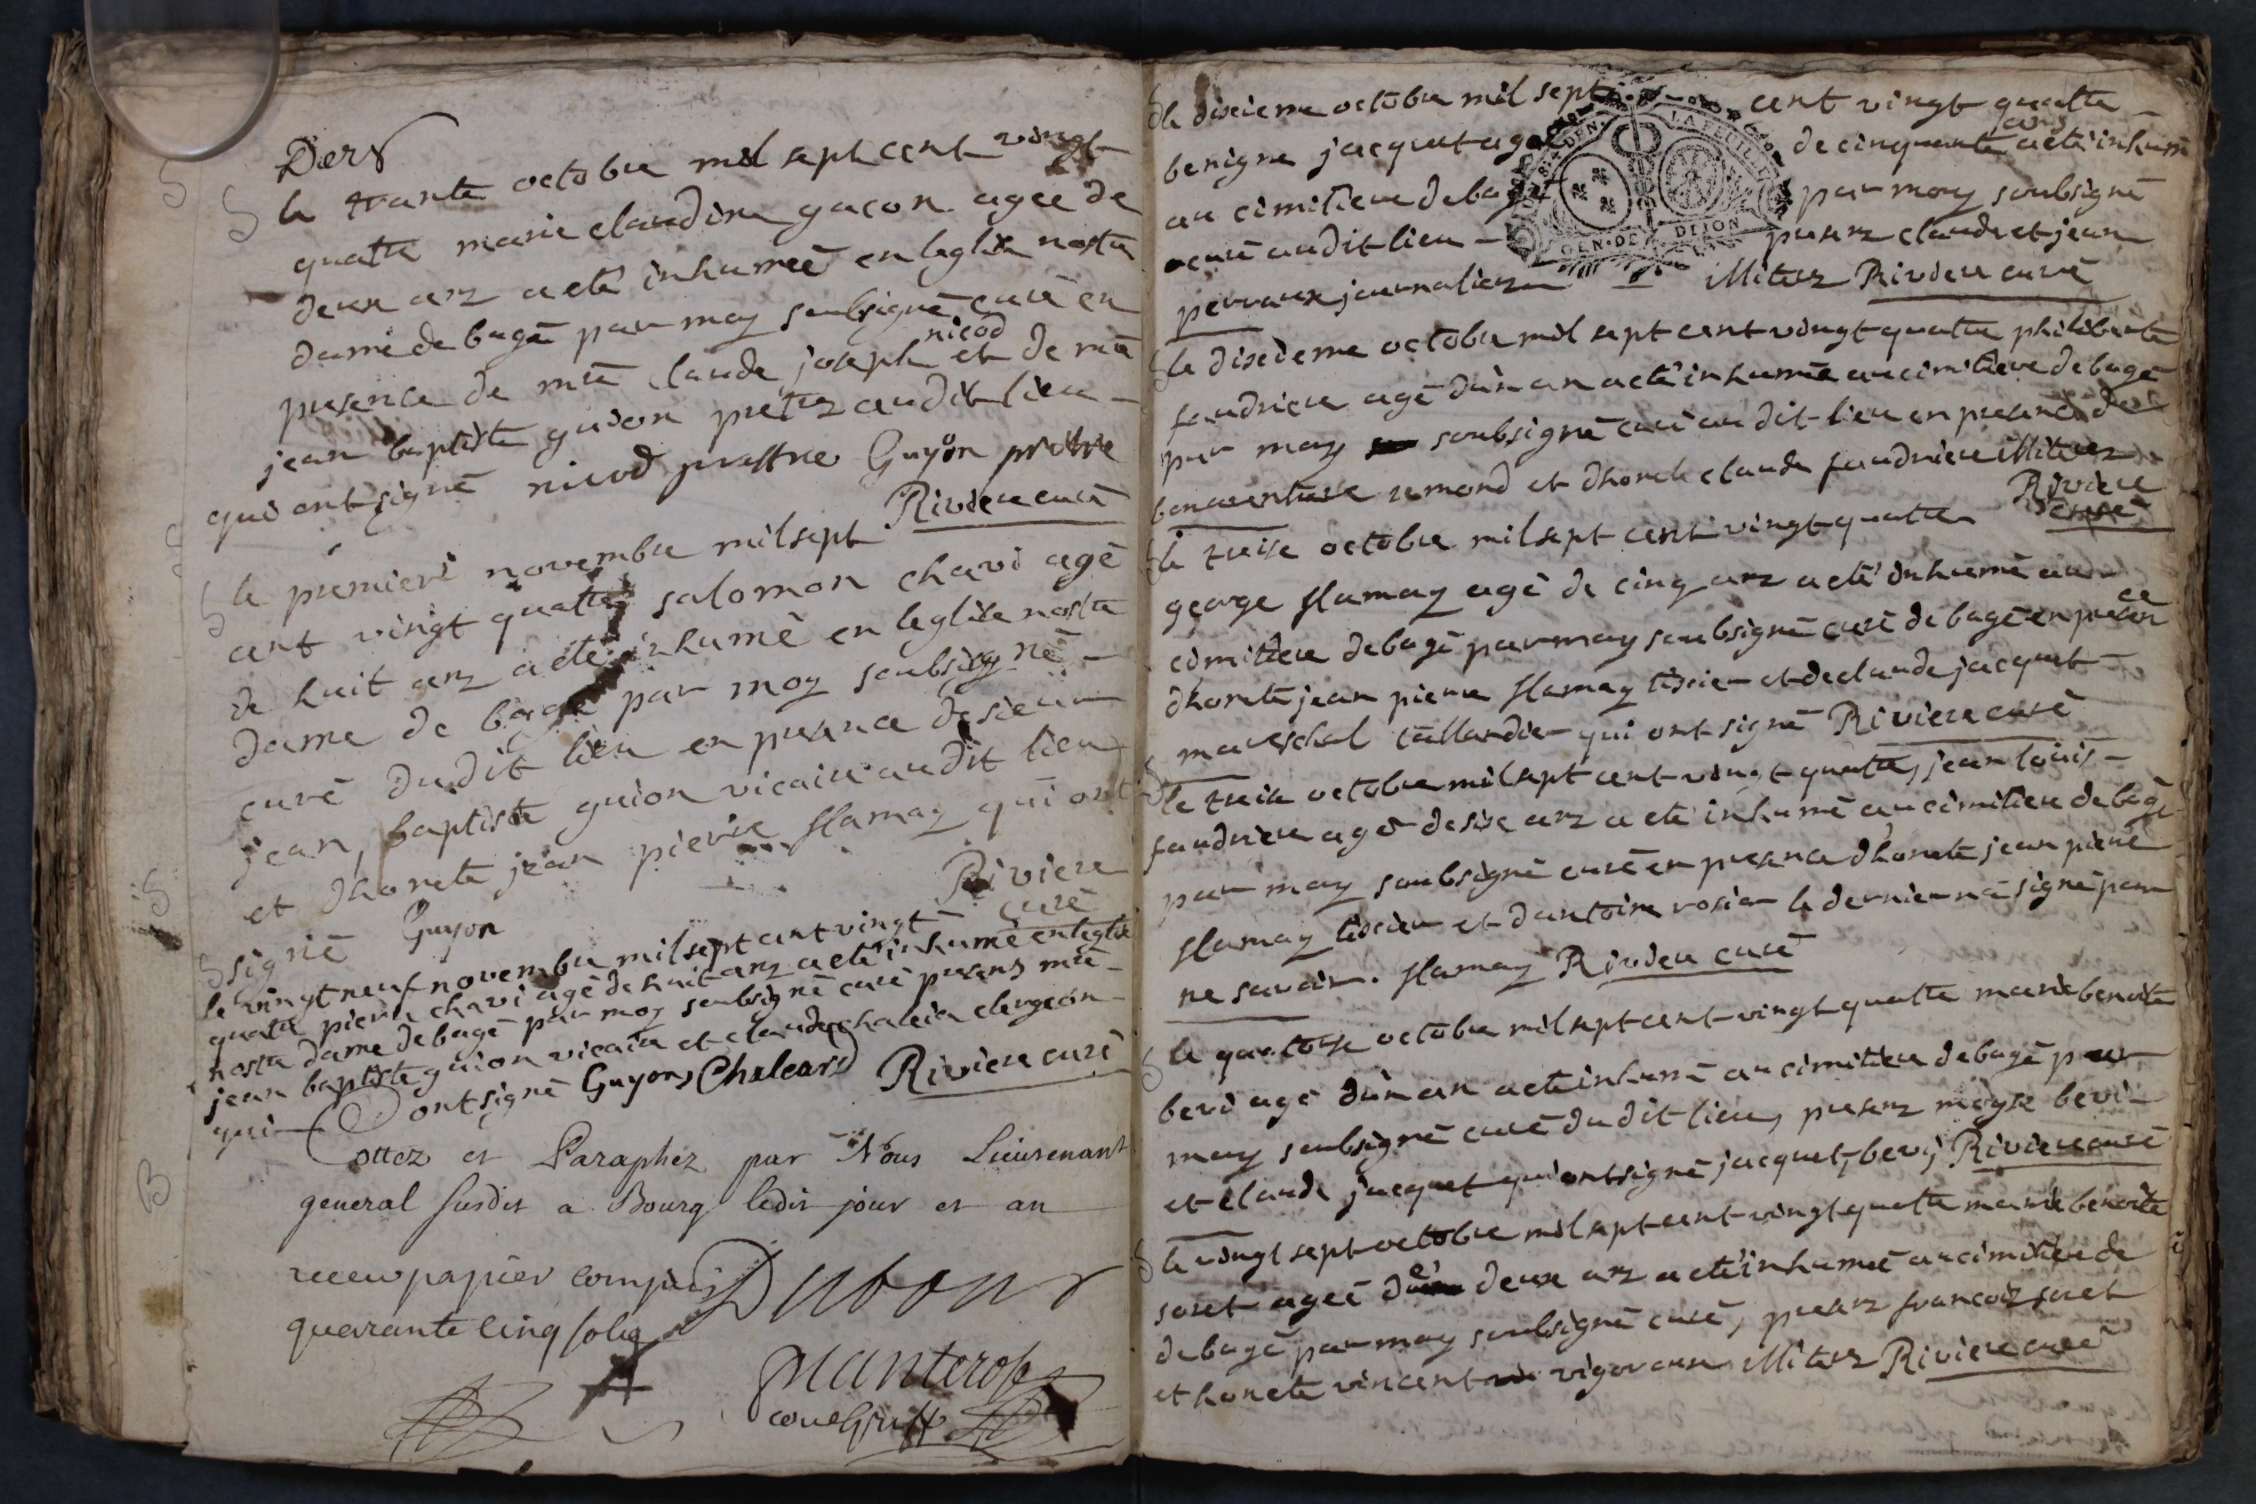 Ders
S le trante octobre mil sept cent vingt
quattre marie claudine gacon agee de
deux anz a eté inhumeé en leglise nostre
dame de bagé par moy soubsigné curé en
presence de mre claude joseph nicod et de mre
jean baptiste guion pretrez audit lieu
qui ont signé nicod prestre Guyon prêtre
Riviere curé
S le premieré novembre mil sept
cent vingt quattre salomon chavi agé
de huit anz a eté inhumé en leglise nostre
dame de bagé par moy soubsigné
curé dudit lieu en presence de sieur
jean, baptiste guion vicaire audit lieu
et dhonete jean pierre flamay qui ont
signé Guyon Riviere curé
S le vingt neuf novembre mil sept cent vingt
quattre pierre chavi agé de huit anz a eté inhumé en leglise
nostre dame de bagé par moy soubsigné curé presens mre
jean baptiste guion vicaire et claude
qui ont signé Guyon, Chaleard Riviere curé
Cottez et Paraphez par Nous Lieutenant
general susdit a Bourg ledit jour et an
receu papier compris Dubour
quarante cinq
S le diseieme octobre mil sept cent vingt quattre
benigne jacquet agé de cinquante ans a eté inhumé
au cimitiere de bagé par moy soubsigné
curé audit lieu presenz claude et jean
perraux journaliers illiterz Riviere curé
LA FEUILLE
GEN. DE DIJON
S le diseieme octobre mil sept cent vingt quattre philiberte
faudriere agé dun an a eté inhumée au cimitiere de bagé
par moy soubsigné curé audit lieu en presence de
bonaventure remond et dhonete claude faudriere illiterz
Riviere curé
S le treise octobre mil sept cent vingt quattre
george flamay agé de cinq anz a eté inhumé au
cimitiere de bagé par moy soubsigné curé de bagé en presence
dhonete jean pierre flamay tissier et de claude jacquet
mareschal tallandier qui ont signé Riviere curé
S le treise octobre mil sept cent vingt quattre, jean louis
faudriere agé de sise anz a eté inhumé au cimitiere de bagé
par moy soubsigné curé en presence dhonete jean pierre
flamay tissier et dantoine rosier le dernier na signé pour
ne savoir. flamay Riviere curé
S le quatorse octobre mil sept cent vingt quattre marie benoite
bevi agé dun an a eté inhumé au cimitiere de bagé par
moy soubsigné curé dudit lieu, presenz moyse bevi
et claude jacquet qui ont signé jacquet, bevy Riviere curé
S le vingt sept octobre mil sept cent vingt quattre marie benoite
soret ageé de deux anz a eté inhumeé au cimitiere de
de bagé par moy soubsigné curé, presenz francois soret
et honete vincent vigoreux illiterz Riviere curé